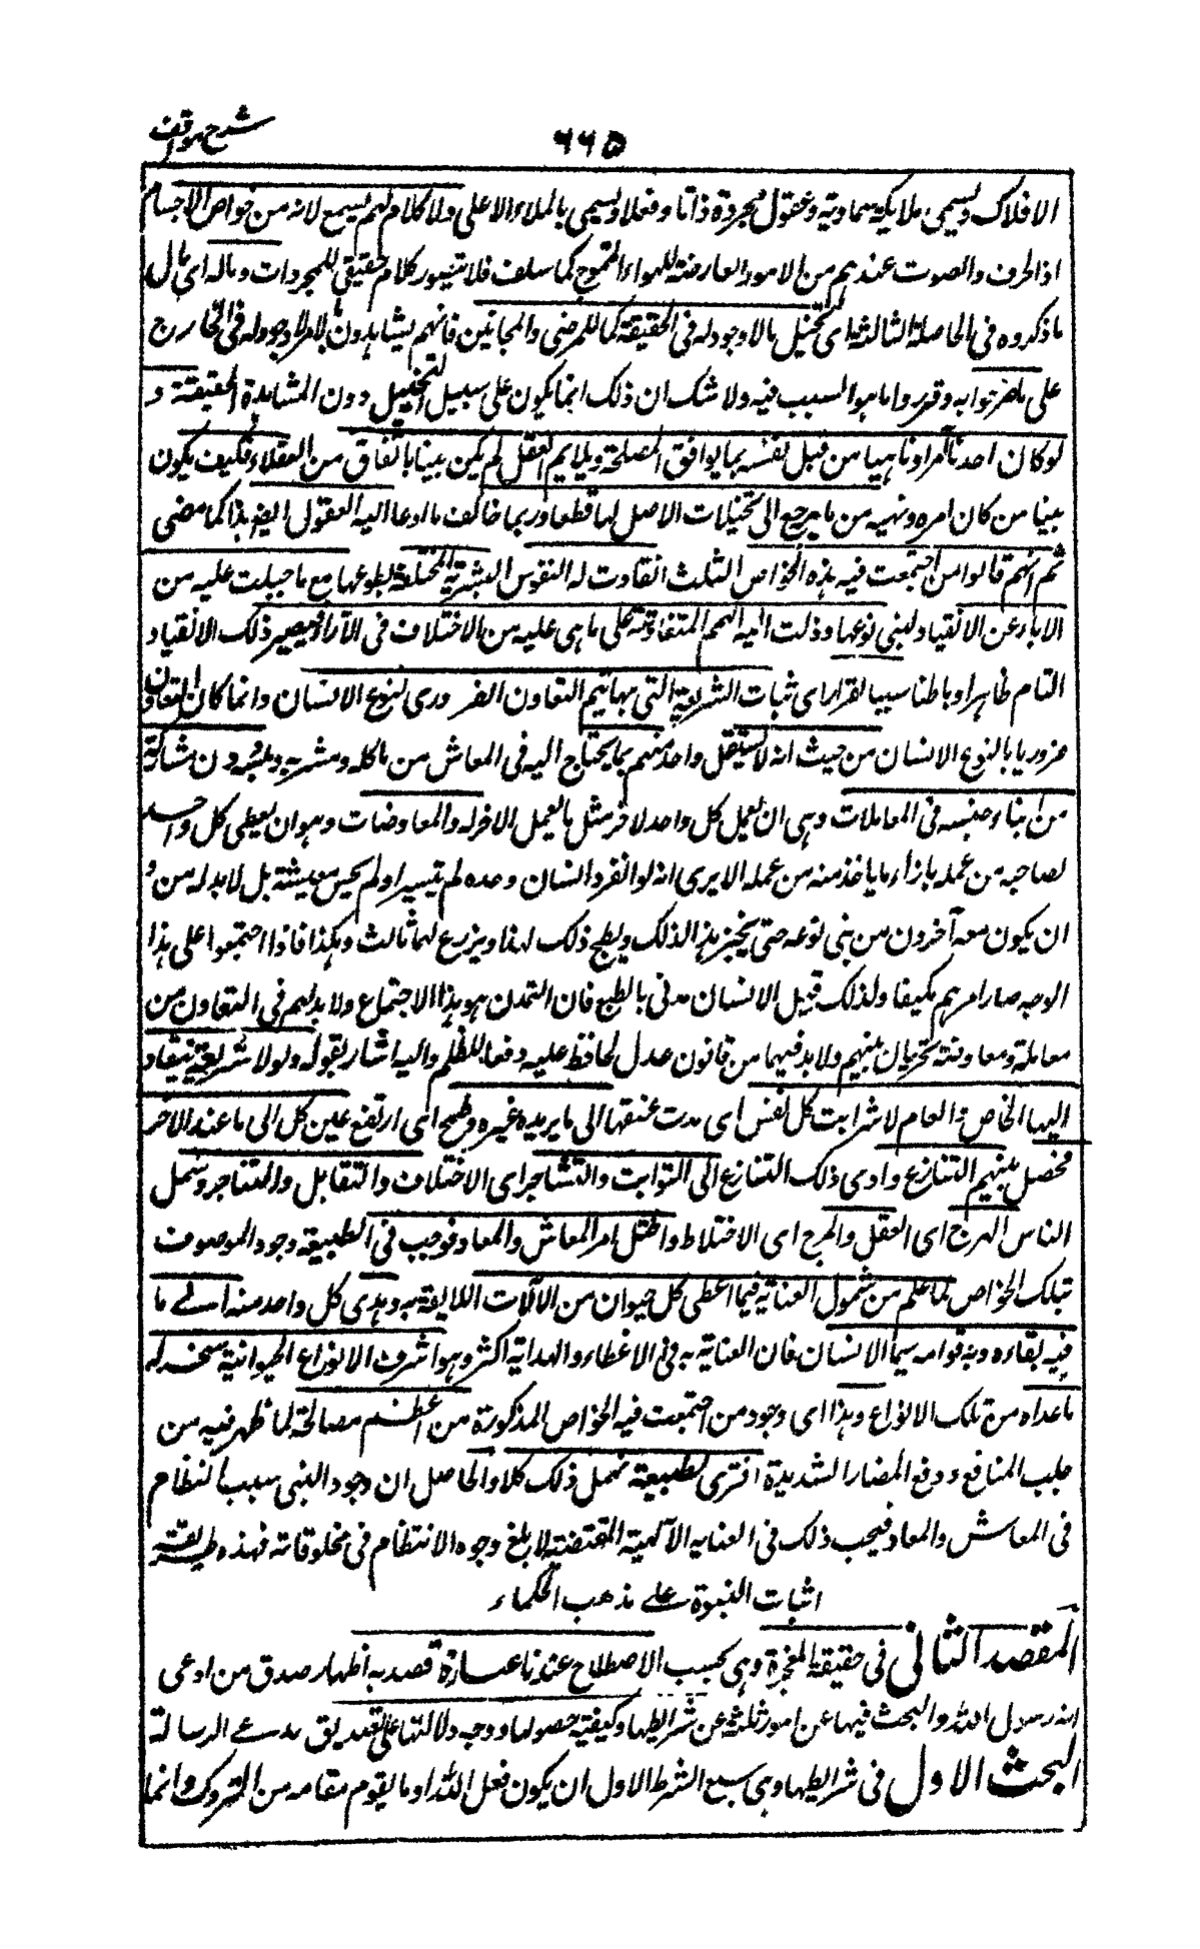 شرح مواقف
٦٦٥
الافلاك ويسمى ملايكة سماوية وعقول مجردة ذاتا وفعلا ويسمى بالملاء الاعلى ولا كلام لهم يسمع لانه من خواص الاجسام
اذ الحرف والصوت عندهم من الامور العارضة للهواء المتموج كما سلف فلا يتصور كلام حقيقى للمجردات وماله اى مآل
ما ذكروه فى الحاصلة الثالثة الى تخيل مالا وجود له فى الحقيقة كما للمرضى والمجانين فانهم يشاهدون مالا وجود له فى الخارج
على ما صرحوا به وقرروا ما هو السبب فيه ولا شك ان ذلك انما يكون على سبيل التخييل دون المشاهدة الحقيقية و
لو كان احدنا آمرا وناهيا من قبل نفسه بما يوافق المصلحة ويلايم العقل لم يكن نبيا باتفاق من العقلاء فكيف يكون
نبيا من كان امره ونهيه من ما يرجع الى تخيلات لا اصل لها قطعا وربما خالف ما دعا اليه العقول ايضا هذا كما مضى
ثم انهم قالوا من اجتمعت فيه هذه الخواص الثلث انقادت له النفوس البشرية المختلفة بطوعها مع ما جبلت عليه من
الاباء عن الانقياد لبنى نوعها وذلت اليه الهمم المتفاوتة على ما هى عليه من الاختلاف فى الآراء فيصير ذلك الانقياد
التام ظاهرا وباطنا سببا لقرار اى ثبات الشريعة التى بها يتم التعاون الضرورى لنوع الانسان وانما كان التعاون
ضروريا بالنوع الانسان من حيث انه لا يستقل واحد منهم بما يحتاج اليه فى المعاش من ماكله ومشربه وملبسه دون مشاركة
من ابناء جنسه فى المعاملات وهى ان يعمل كل واحد لاخر مثل ما يعمل الاخر له والمعاوضات وهو ان يعطى كل واحد
لصاحبه من عمله بازاء ما ياخذ منه من عمله الا يرى انه لو انفرد انسان وحده لم يتيسر او لم يحسن معيشته بل لا بد له من
ان يكون معه آخرون من بنى نوعه حتى يخبز هذا لذلك ويطبخ ذلك لهذا ويزرع لهما ثالث وهكذا فاذا اجتمعوا على هذا
الوجه صار امرهم مكفيا ولذلك قيل الانسان مدنى بالطبع فان التمدن هو هذا الاجتماع ولا بد لهم فى التعاون من
معاملة ومعاونة تجريان بينهم ولا بد فيهما من قانون عدل يحافظ عليه دفعا للظلم واليه اشار بقوله ولولا شريعة ينقاد
اليها الخاص والعام لاشرأبت كل نفس اى مدت عنقها الى ما يريده غيره وطمح اى ارتفع عين كل الى ما عند الآخر
فحصل بينهم التنازع وادى ذلك التنازع الى التواثب والتشاجر اى الاختلاف والتقابل والتناجر وشمل
الناس الهرج اى القتل والمرج اى الاختلاط واختل امر المعاش والمعاد فوجب فى الطبيعة وجود الموصوف
بتلك الخواص لما علم من شمول العناية فيما اعطى كل حيوان من الآلات اللايقة به وهدى كل واحد منه الى ما
فيه بقاءه وبه قوامه سيما الانسان فان العناية به فى الاعطاء والهداية اكثر وهو اشرف الانواع الحيوانية سخر له
ما عداه من تلك الانواع وهذا اى وجود من اجتمعت فيه الخواص المذكورة من اعظم مصالحه لما ظهر فيه من
جلب المنافع ودفع المضار الشديدة افترى الطبيعة تهمل ذلك كلا والحاصل ان وجود النبى سبب النظام
فى المعاش والمعاد فيجب ذلك فى العناية الآلهية المقتضية لابلغ وجوه الانتظام فى مخلوقاته فهذه طريقة
اثبات النبوة على مذهب الحكماء
المقصد الثانى فى حقيقة المعجزة وهى بحسب الاصطلاح عندنا عبارة قصد به اظهار صدق من ادعى
انه رسول الله والبحث فيها عن امور ثلثة عن شرايطها وكيفية حصولها ووجه دلالتها على تصديق مدعى الرسالة
البحث الاول فى شرايطها وهى سبع الشرط الاول ان يكون فعل الله او ما يقوم مقامه من التروك وانما